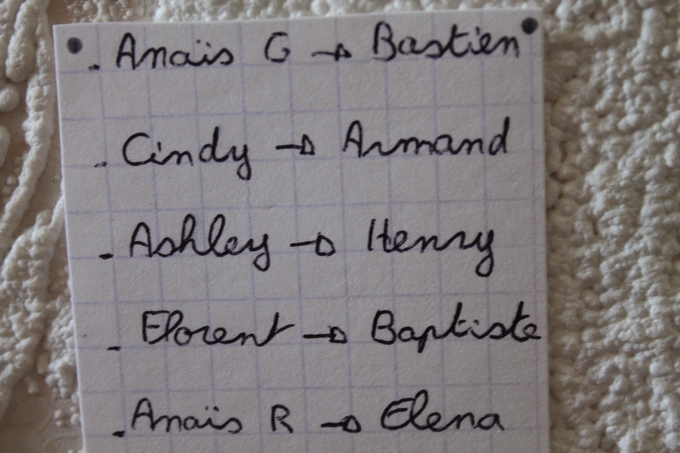 . Anaïs G → Bastien
. Cindy → Armand
- Ashley → Henry
- Florent → Baptiste
. Anaïs R → Elena